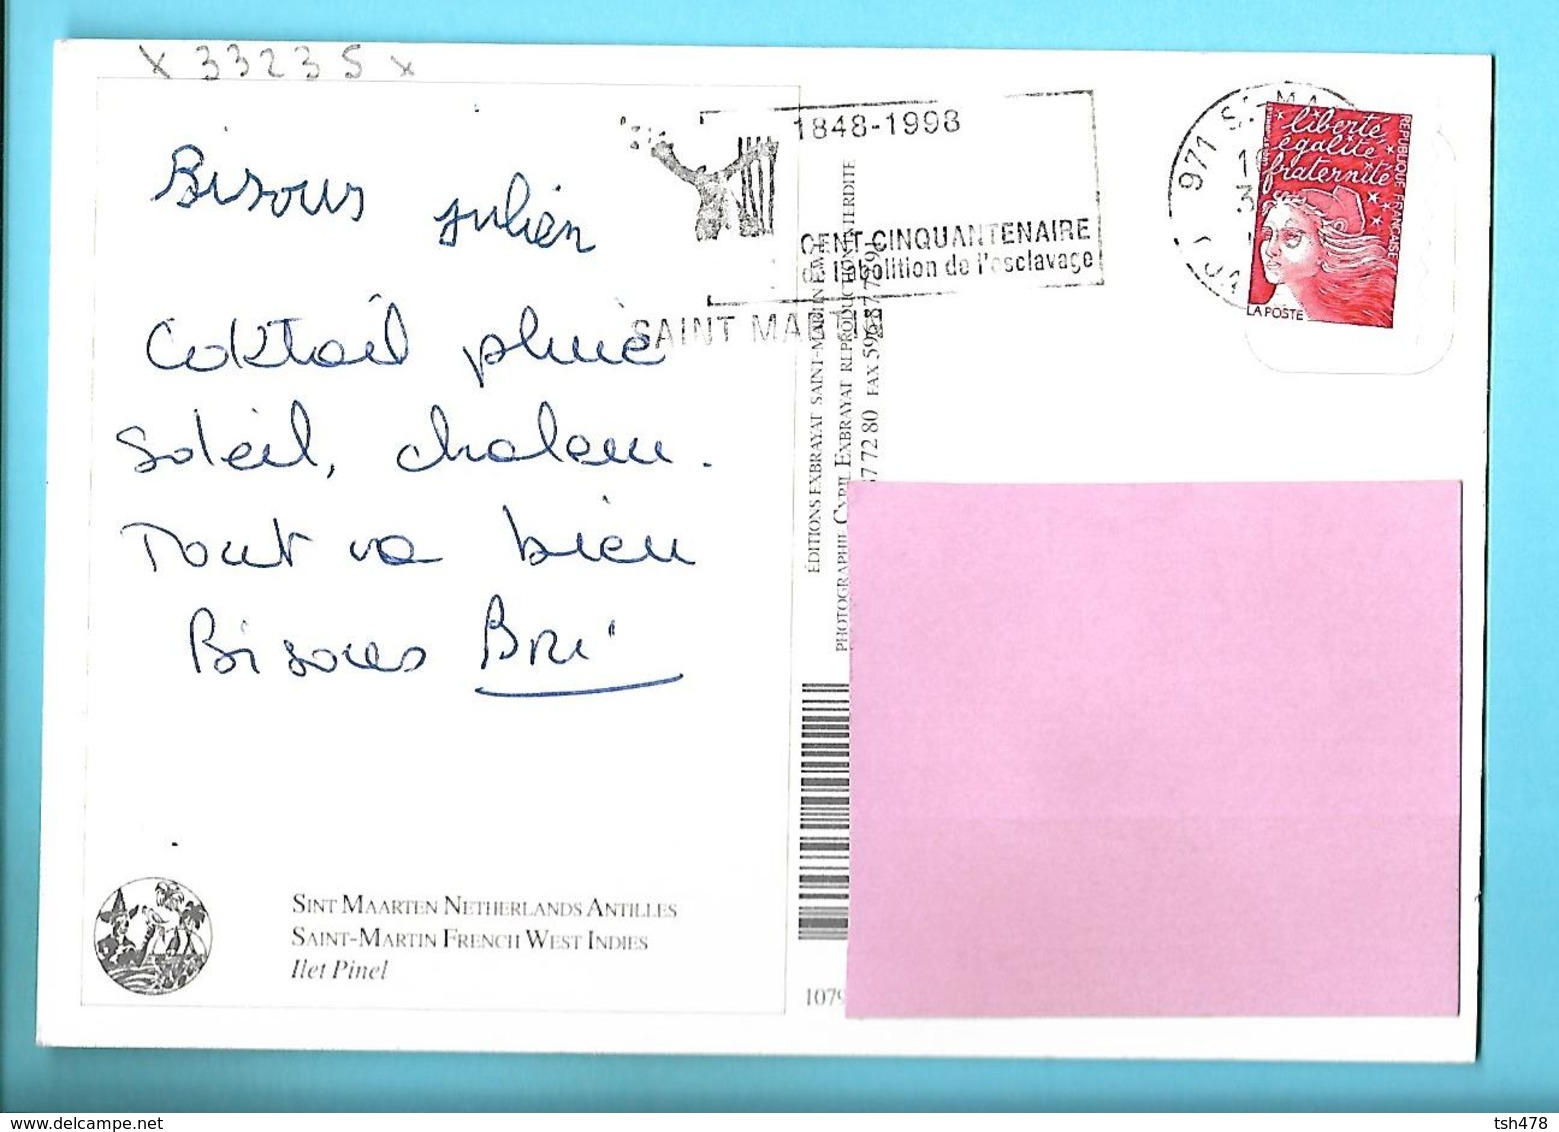 x 33235 x
Bisous julien
Coktail pluie
soleil, chaleur.
Tout va bien
Bisous Bri
SINT MAARTEN NETHERLANDS ANTILLES
SAINT-MARTIN FRENCH WEST INDIES
Ilet Pinel
1848-1998
CENT-CINQUANTENAIRE
de l'abolition de l'esclavage
SAINT MARTIN
ÉDITIONS EXBRAYAT SAINT-MARTIN F.W.I.
PHOTOGRAPHIE CYRIL EXBRAYAT REPRODUCTION INTERDITE
87 72 80 FAX 596 87 75 91
1079
971 ST-MA
liberté,
égalité
fraternité
RÉPUBLIQUE FRANÇAISE
LA POSTE
tsh478
delcampe.net